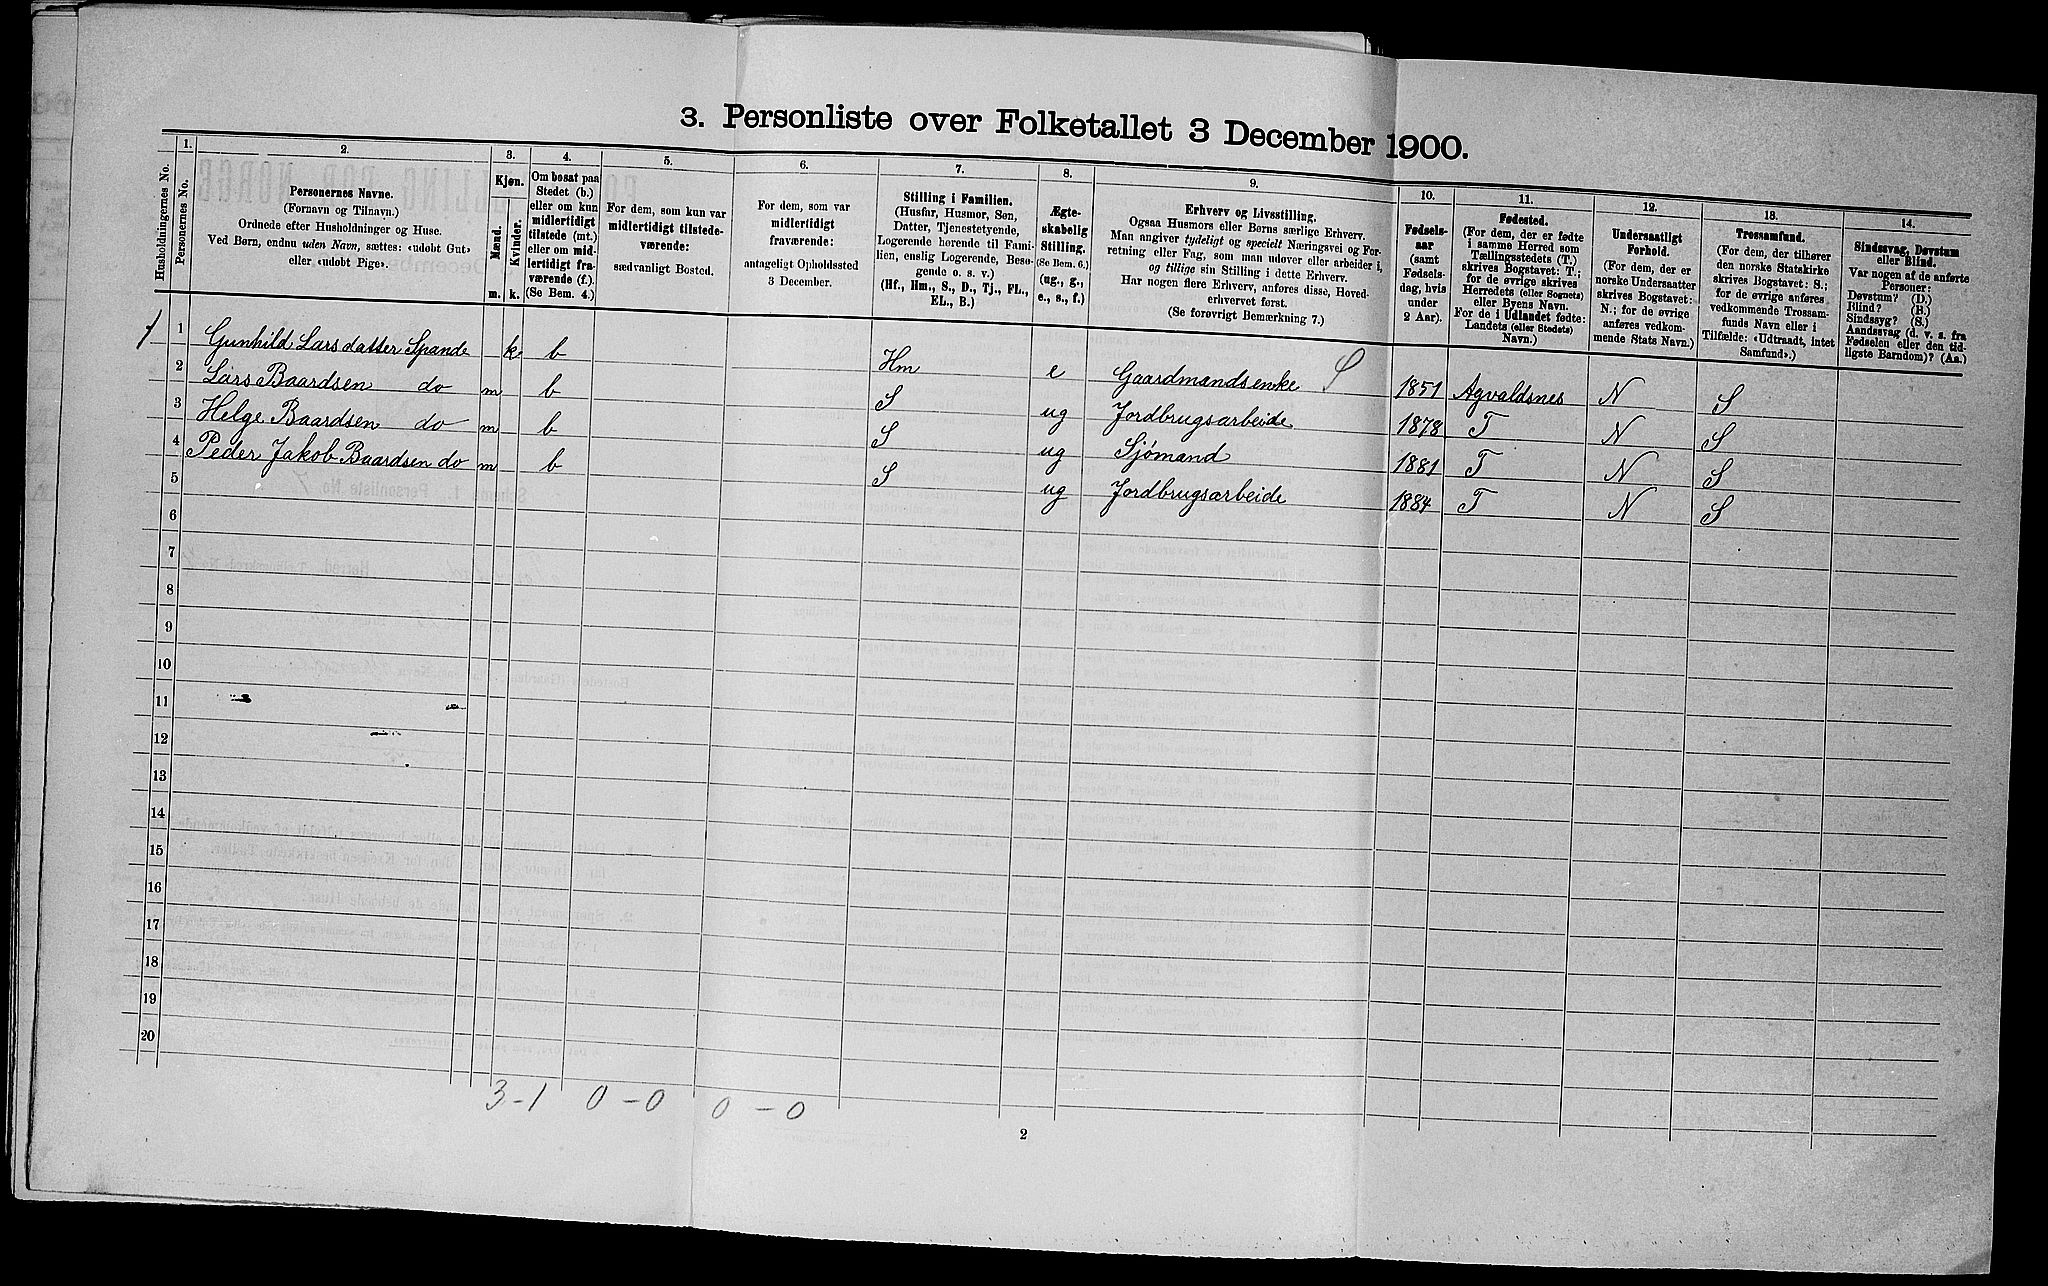 3. Personliste over Folketallet 3 December 1900.
1. 2. 3. 4. 5. 6. 7. 8. 9. 10. 11. 12. 13. 14.
Husholdningernes No.
Personernes No.
Personernes Navne.
(Fornavn og Tilnavn.)
Ordnede efter Husholdninger og Huse.
Ved Børn, endnu uden Navn, sættes: «udøbt Gut»
eller «udøbt Pige».
Kjøn.
Mænd. Kvinder.
m. k.
Om bosat paa
Stedet (b.)
eller om kun
midlertidigt
tilstede (mt.)
eller om mid-
lertidigt fra-
værende (f.).
(Se Bem. 4.)
For dem, som kun var
midlertidigt tilstede-
værende:
sædvanligt Bosted.
For dem, som var
midlertidigt
fraværende:
antageligt Opholdssted
3 December.
Stilling i Familien.
(Husfar, Husmor, Søn,
Datter, Tjenestetyende,
Logerende hørende til Fami-
lien, enslig Logerende, Besø-
gende o. s. v.)
(Hf., Hm., S., D., Tj., FL.,
EL., B.)
Ægte-
skabelig
Stilling.
(Se Bem. 6.)
(ug., g.,
e., s., f.)
Erhverv og Livsstilling.
Ogsaa Husmors eller Børns særlige Erhverv.
Man angiver tydeligt og specielt Næringsvei og For-
retning eller Fag, som man udøver eller arbeider i,
og tillige sin Stilling i dette Erhverv.
Har nogen flere Erhverv, anføres disse, Hoved-
erhvervet først.
(Se forøvrigt Bemærkning 7.)
Fødsels-
aar
(samt
Fødsels-
dag, hvis
under
2 Aar).
Fødested.
(For dem, der er fødte
i samme Herred som
Tællingsstedets (T.)
skrives Bogstavet: T.;
for de øvrige skrives
Herredets (eller Sognets)
eller Byens Navn.
For de i Udlandet fødte:
Landets (eller Stedets)
Navn.)
Undersaatligt
Forhold.
(For dem, der er
norske Undersaatter
skrives Bogstavet:
N.; for de øvrige
anføres vedkom-
mende Stats Navn.)
Trossamfund.
(For dem, der tilhører
den norske Statskirke
skrives Bogstavet: S.;
for de øvrige anføres
vedkommende Trossam-
funds Navn eller i
Tilfælde: «Udtraadt, intet
Samfund».)
Sindssvag, Døvstum
eller Blind.
Var nogen af de anførte
Personer:
Døvstum? (D.)
Blind? (B.)
Sindssyg? (S.)
Aandssvag (d. v. s. fra
Fødselen eller den tid-
ligste Barndom)? (Aa.)
1 1 Gunhild Larsdatter Spande k b Hm e Gaardmandsenke S 1851 Agvaldsnes N S
2 Lars Baardsen do m b S ug Jordbrugsarbeide 1878 T N S
3 Helge Baardsen do m b S ug Sjömand 1881 T N S
4 Peder Jakob Baardsen do m b S ug Jordbrugsarbeide 1884 T N S
5
6
7
8
9
10
11
12
13
14
15
16
17
18
19
20
3-1 0-0 0-0
2